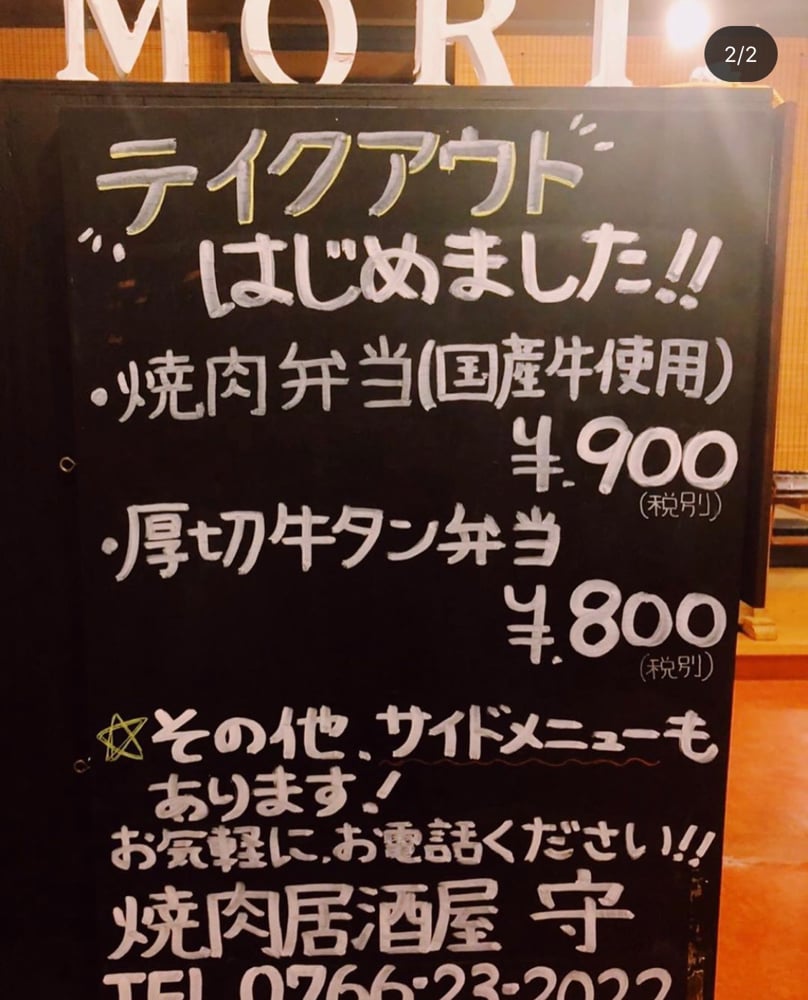 MORI
2/2
テイクアウト
はじめました!!
・焼肉弁当(国産牛使用)
¥.900
(税別)
・厚切牛タン弁当
¥.800
(税別)
☆その他、サイドメニューも
あります!
お気軽に、お電話ください!!
焼肉居酒屋 守
TEL 0766-23-2022